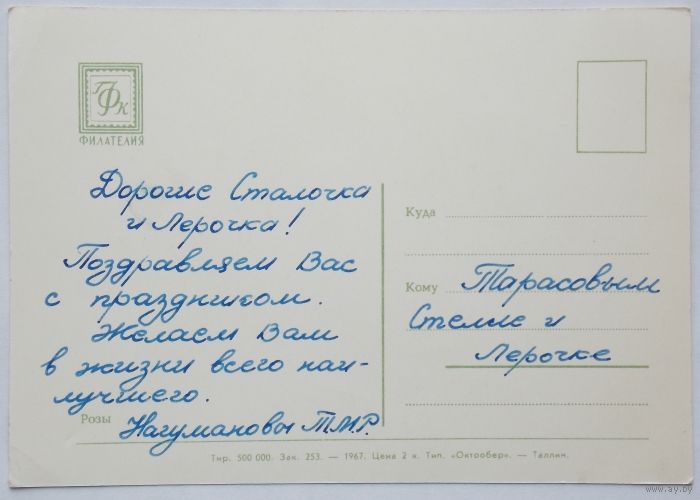 ГФК
ФИЛАТЕЛИЯ
Дорогие Сталочка
и Лерочка!
Поздравляем Вас
с праздником.
Желаем Вам
в жизни всего наи-
лучшего.
Розы
Нагумановы Т.М.Р.
Куда
Кому Тарасовым
Стелле и
Лерочке
Тир. 500 000. Зак. 253. — 1967. Цена 2 к. Тип. «Октообер». — Таллин.
www.ay.by